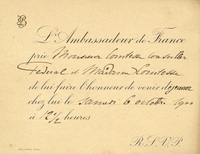 L'Ambassadeur de France
prie Monsieur Comtesse Conseiller
Fédéral et Madame Comtesse
de lui faire l'honneur de venir déjeuner
chez lui le Samedi 6 octobre
à 12 ½ heures
R.S.V.P.